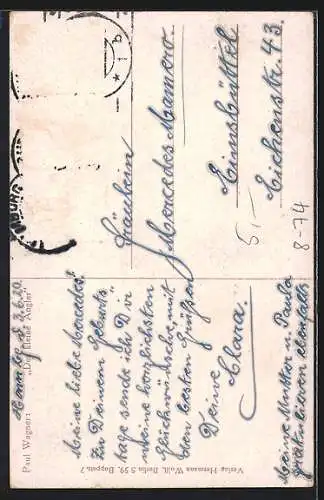 Paul Wagner: "Der kleine Angler"
Hamburg, d. 3.6.20
Meine liebe Mercedes!
Zu Deinem Geburts
tage sende ich Dir
meine herzlichsten
Glückwünsche, mit
den besten Grüßen
Deine
Clara.
Meine Mutter u. Paula
gratulieren ebenfalls
Verlag Hermann Wolff, Berlin S 59.
Fräulein
Mercedes Mamero.
Eimsbüttel
Eichenstr. 43.
5,-
8-74